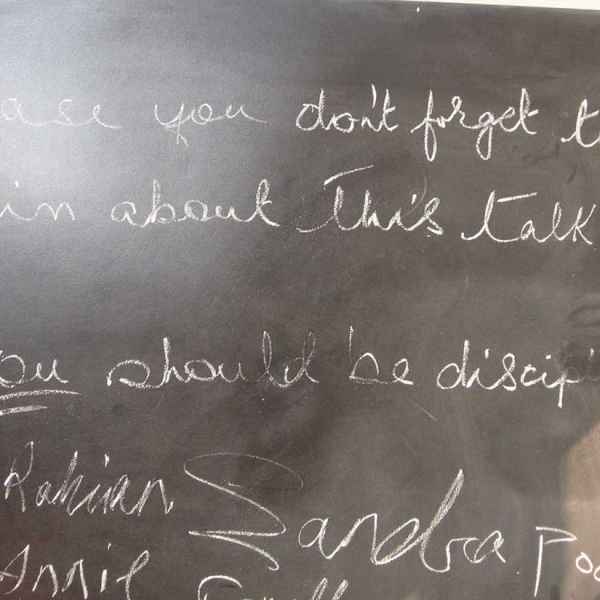 ase you don't forget t
in about This talk
ou should be discip
Rahian Sandra Poo
Annie